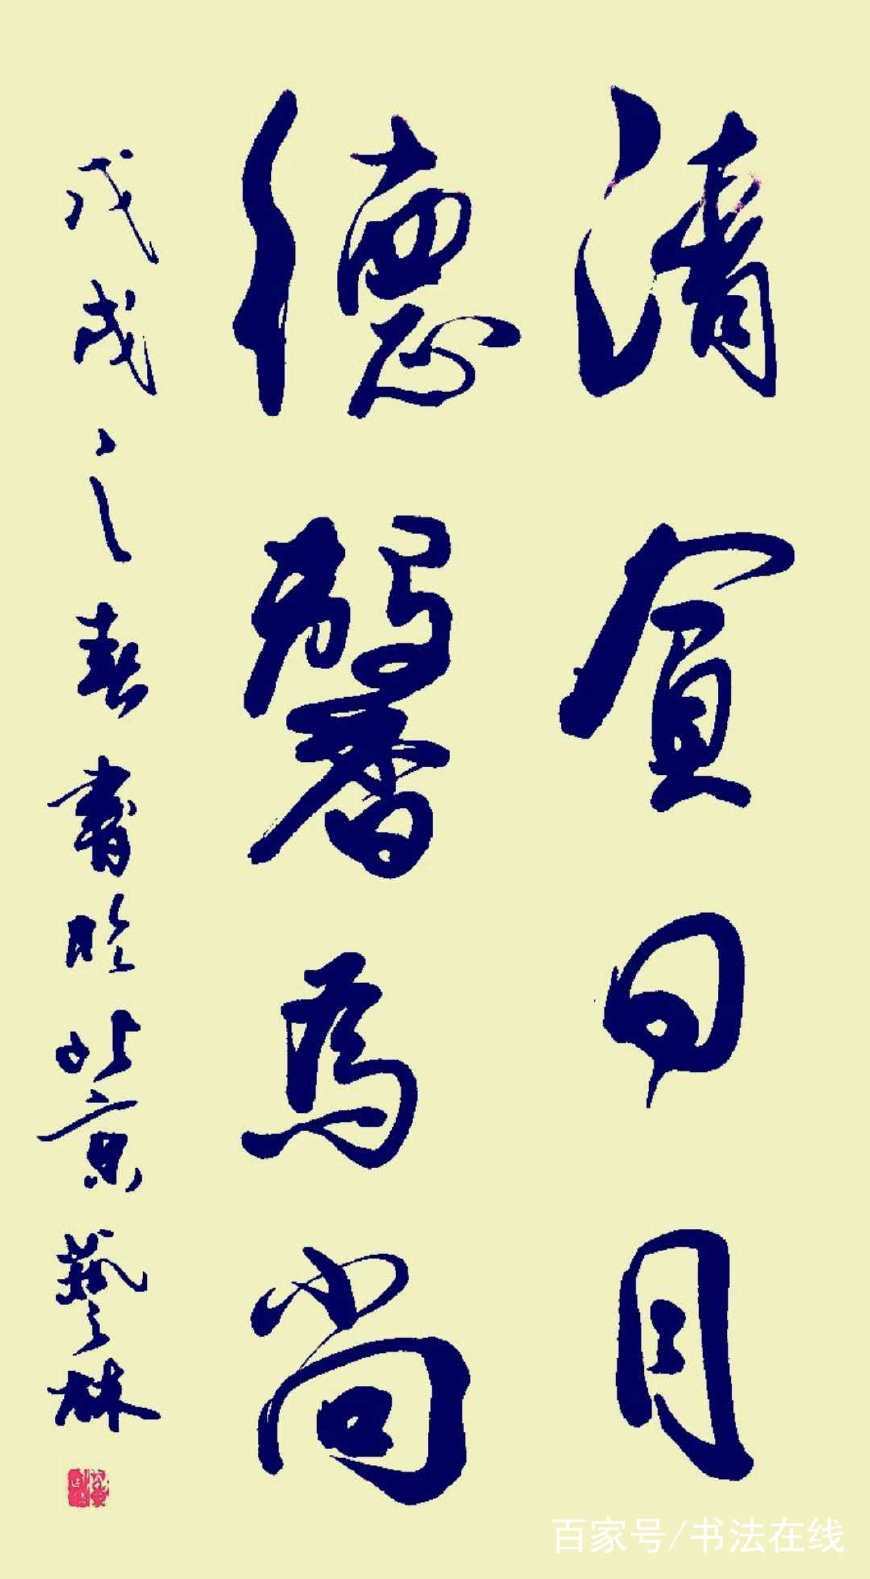 清貧日月
德馨為尚
戊戌之春書於北京藝林
百家号/书法在线